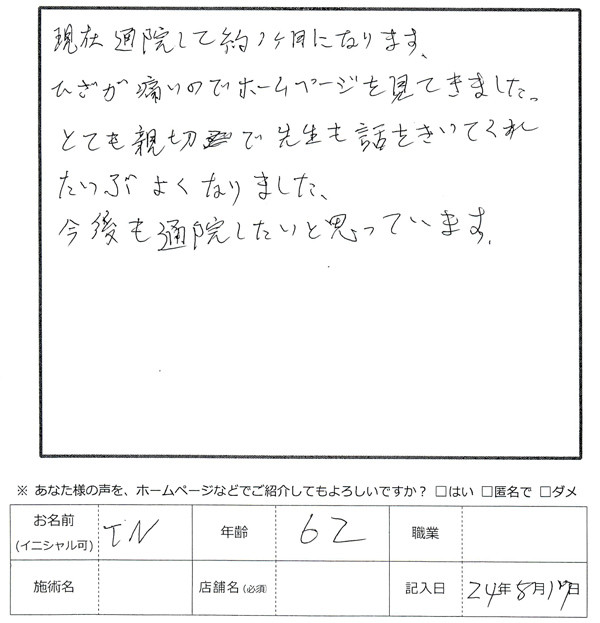 現在通院して約1ヶ月になります。
ひざが痛いのでホームページを見てきました。
とても親切で先生も話をきいてくれ
だいぶよくなりました、
今後も通院したいと思っています。
※ あなた様の声を、ホームページなどでご紹介してもよろしいですか？ □はい □匿名で □ダメ
お名前 (イニシャル可) IN 年齢 62 職業
施術名 店舗名（必須） 記入日 24年8月17日